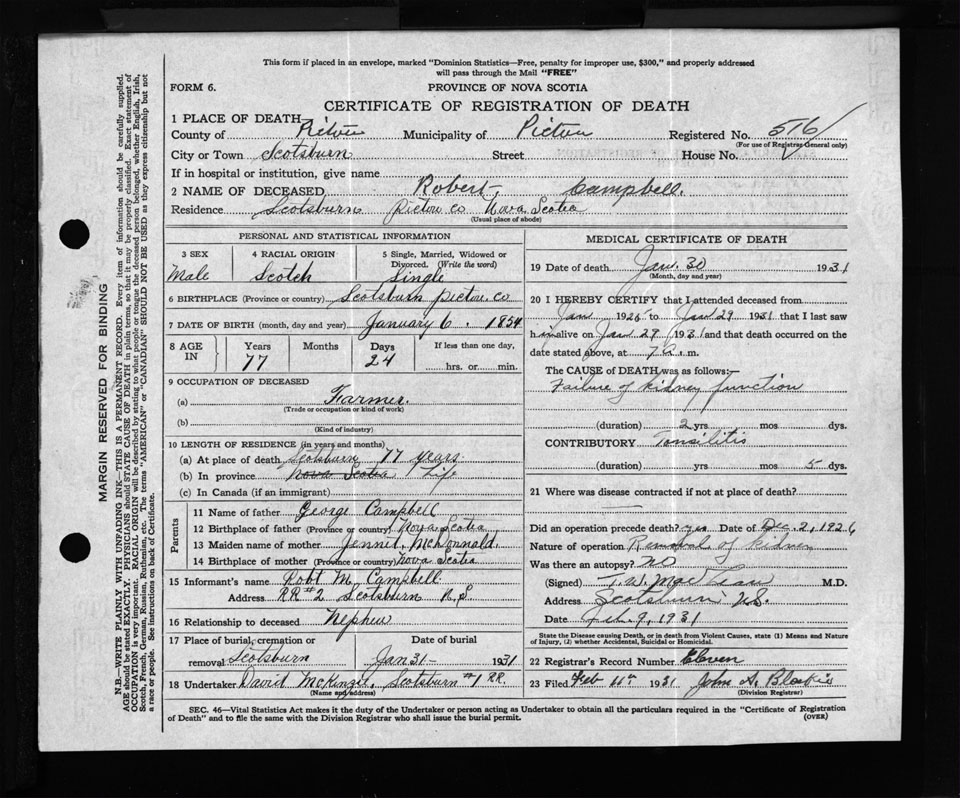 This form if placed in an envelope, marked "Dominion Statistics—Free, penalty for improper use, $300," and properly addressed
will pass through the Mail "FREE"
FORM 6.
PROVINCE OF NOVA SCOTIA
CERTIFICATE OF REGISTRATION OF DEATH
1 PLACE OF DEATH
County of Pictou Municipality of Pictou Registered No. 516
(For use of Registrar General only)
City or Town Scotsburn Street House No.
If in hospital or institution, give name
2 NAME OF DECEASED Robert Campbell.
Residence Scotsburn Pictou co Nova Scotia
(Usual place of abode)
PERSONAL AND STATISTICAL INFORMATION
3 SEX 4 RACIAL ORIGIN 5 Single, Married, Widowed or
Divorced. (Write the word)
Male Scotch Single
6 BIRTHPLACE (Province or country) Scotsburn Pictou co
7 DATE OF BIRTH (month, day and year) January 6. 1854
8 AGE IN Years Months Days If less than one day,
77 24 hrs. or min.
9 OCCUPATION OF DECEASED
(a) Farmer.
(Trade or occupation or kind of work)
(b)
(Kind of industry)
10 LENGTH OF RESIDENCE (in years and months)
(a) At place of death Scotsburn 77 years.
(b) In province Nova Scotia Life
(c) In Canada (if an immigrant)
Parents
11 Name of father George Campbell
12 Birthplace of father (Province or country) Nova Scotia
13 Maiden name of mother Jennit. McDonnald.
14 Birthplace of mother (Province or country) Nova Scotia
15 Informant's name Robt M. Campbell
Address RR#2 Scotsburn N.S.
16 Relationship to deceased Nephew
17 Place of burial, cremation or Date of burial
removal Scotsburn Jan 31- 1931
18 Undertaker David McKenzie, Scotsburn #1 RR.
(Name and address)
MEDICAL CERTIFICATE OF DEATH
19 Date of death Jan. 30 1931
(Month, day and year)
20 I HEREBY CERTIFY that I attended deceased from
Jan 1926 to Jan 29 1931 that I last saw
h im alive on Jan 29 1931 and that death occurred on
date stated above, at 7 a. m.
The CAUSE of DEATH was as follows:—
Failure of kidney function
(duration) 2 yrs mos dys.
CONTRIBUTORY Tonsilitis
(duration) yrs mos 5 dys.
21 Where was disease contracted if not at place of death?
Did an operation precede death? yes Date of Dec. 2, 1926
Nature of operation Removal of kidney
Was there an autopsy? No
(Signed) T. W. MacLean M.D.
Address Scotsburn N.S.
Date Feb. 9, 1931
State the Disease causing Death, or in death from Violent Causes, state (1) Means and Nature
of Injury, (2) whether Accidental, Suicidal or Homicidal.
22 Registrar's Record Number Eleven
23 Filed Feb 11th 1931 John A.
(Division Registrar)
SEC. 46—Vital Statistics Act makes it the duty of the Undertaker or person acting as Undertaker to obtain all the particulars required in the "Certificate of Registration
of Death" and to file the same with the Division Registrar who shall issue the burial permit.
(OVER)
MARGIN RESERVED FOR BINDING
N.B.—WRITE PLAINLY WITH UNFADING INK—THIS IS A PERMANENT RECORD. Every item of information should be carefully supplied.
AGE should be stated EXACTLY. PHYSICIANS should STATE CAUSE OF DEATH in plain terms, so that it may be properly classified. Exact statement of
OCCUPATION is very important. RACIAL ORIGIN will be described by stating to what people or tongue the deceased person belonged, whether English, Irish,
Scotch, French, German, Russian, Ruthenian, etc. The terms "AMERICAN" or "CANADIAN" SHOULD NOT BE USED as they express citizenship but not
a race or people. See instructions on back of Certificate.